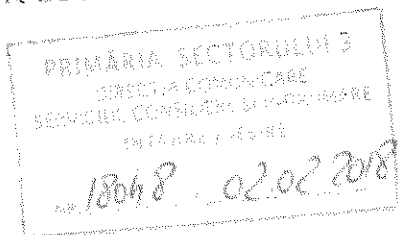 PRIMĂRIA SECTORULUI 3
DIRECȚIA COMUNICARE
SERVICIUL
INTRARE / IEȘIRE
NR. 18048 / 02.02 2018